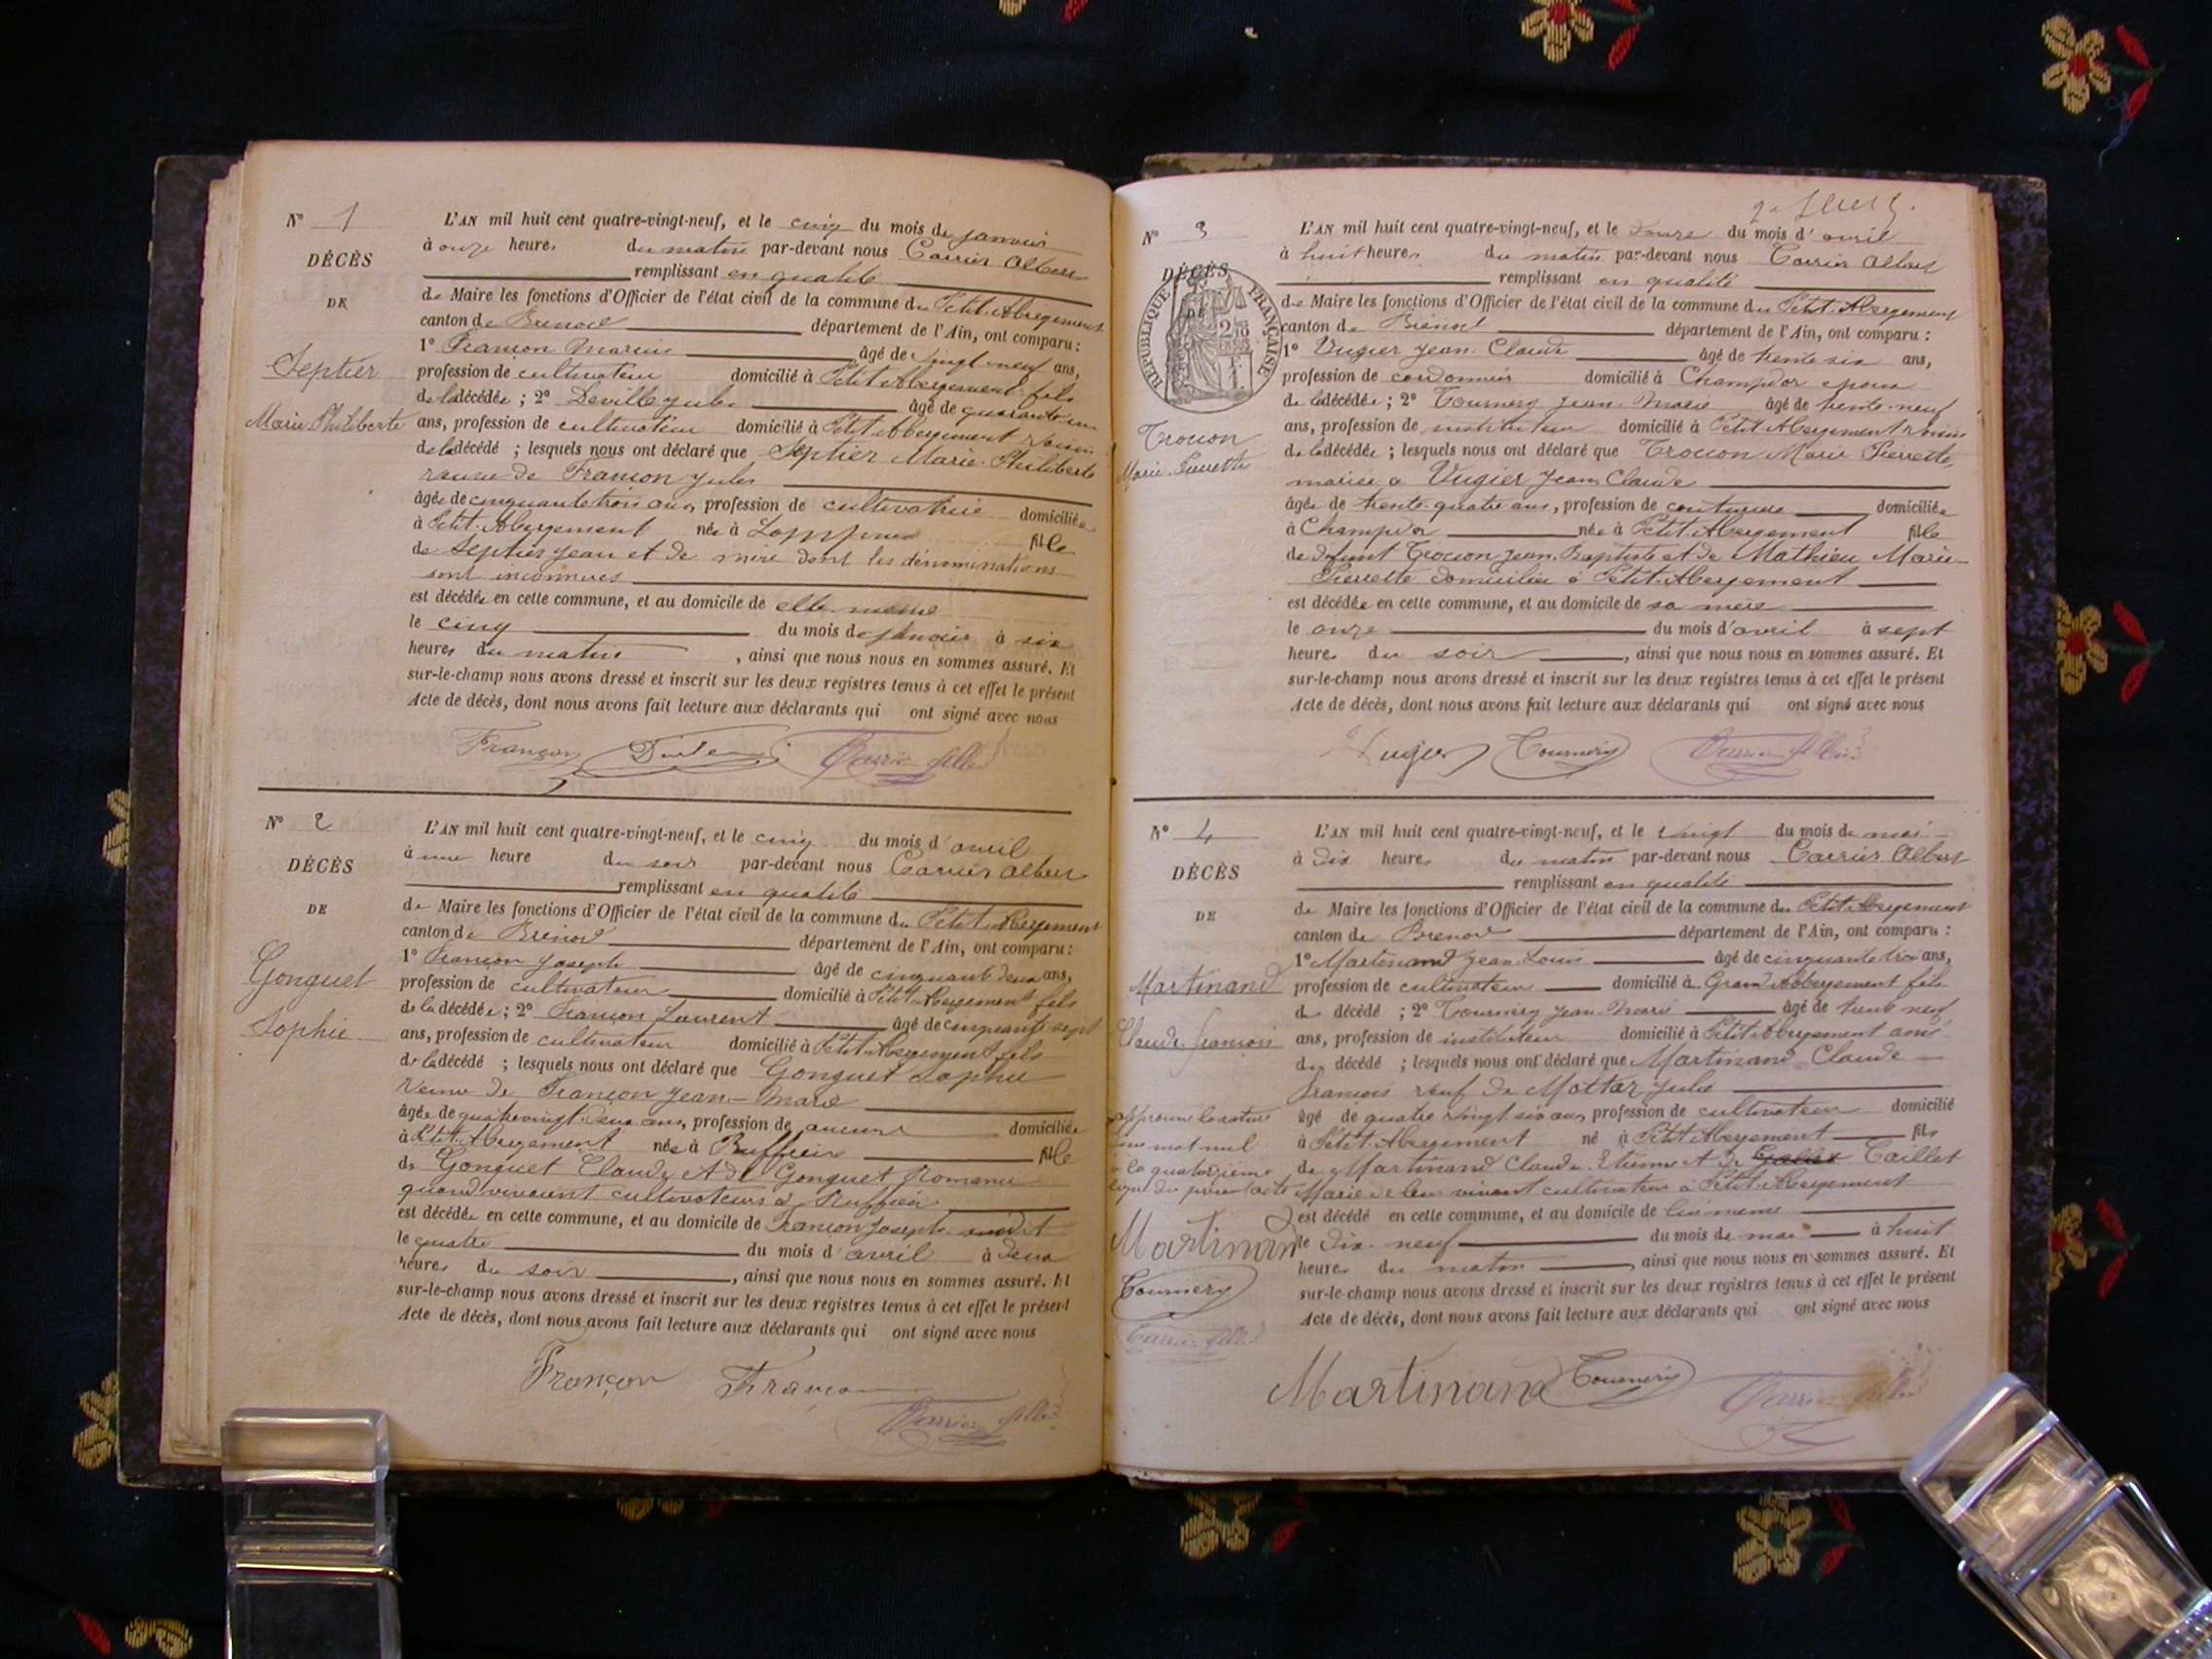 N° 1
DÉCÈS
DE
Septier
Marie Philiberte
L'AN mil huit cent quatre-vingt-neuf, et le cinq du mois de janvier
à onze heures du matin par-devant nous Carrier Albert
remplissant en qualité
de Maire les fonctions d'Officier de l'état civil de la commune du Petit-Abergement
canton de Brénod département de l'Ain, ont comparu :
1° Françon Marius âgé de vingt-neuf ans,
profession de cultivateur domicilié à Petit-Abergement fils
de la décédée ; 2° Deville Jules âgé de quarante un
ans, profession de cultivateur domicilié à Petit Abergement voisin
de la décédé ; lesquels nous ont déclaré que Septier Marie-Philiberte
veuve de Françon Jules
âgée de cinquante trois ans, profession de cultivatrice domiciliée
à Petit-Abergement née à fille
de Septier Jean et de mère dont les dénominations
sont inconnues
est décédée en cette commune, et au domicile de elle-même
le cinq du mois de janvier à six
heures du matin, ainsi que nous nous en sommes assuré. Et
sur-le-champ nous avons dressé et inscrit sur les deux registres tenus à cet effet le présent
Acte de décès, dont nous avons fait lecture aux déclarants qui ont signé avec nous
Françon Carrier Albert
N° 2
DÉCÈS
DE
Gonguet
Sophie
L'AN mil huit cent quatre-vingt-neuf, et le cinq du mois d'avril
à une heure du soir par-devant nous Carrier Albert
remplissant en qualité
de Maire les fonctions d'Officier de l'état civil de la commune du Petit-Abergement
canton de Brénod département de l'Ain, ont comparu :
1° Françon Joseph âgé de cinquante deux ans,
profession de cultivateur domicilié à Petit-Abergement fils
de la décédée ; 2° Françon Laurent âgé de cinquante-sept
ans, profession de cultivateur domicilié à Petit-Abergement fils
de la décédé ; lesquels nous ont déclaré que Gonguet Sophie
veuve de Françon Jean-Marie
âgée de quatrevingt deux ans, profession de aucune domiciliée
à Petit-Abergement née à Ruffieu fille
de Gonguet Claude et de Gonguet Romaine
quand vivaient cultivateurs à Ruffieu
est décédée en cette commune, et au domicile de Françon Joseph susdit
le quatre du mois d'avril à deux
heures du soir, ainsi que nous nous en sommes assuré. Et
sur-le-champ nous avons dressé et inscrit sur les deux registres tenus à cet effet le présent
Acte de décès, dont nous avons fait lecture aux déclarants qui ont signé avec nous
Françon Françon
Carrier Albert
N° 3
DÉCÈS
DE
RÉPUBLIQUE FRANÇAISE
Trocon
Marie-Pierrette
L'AN mil huit cent quatre-vingt-neuf, et le douze du mois d'avril
à huit heures du matin par-devant nous Carrier Albert
remplissant en qualité
de Maire les fonctions d'Officier de l'état civil de la commune du Petit-Abergement
canton de Brénod département de l'Ain, ont comparu :
1° Vugier Jean-Claude âgé de trente six ans,
profession de cordonnier domicilié à Champdor époux
de la décédée ; 2° Tournery Jean-Marie âgé de trente-neuf
ans, profession de instituteur domicilié à Petit-Abergement voisin
de la décédée ; lesquels nous ont déclaré que Trocon Marie Pierrette,
mariée à Vugier Jean Claude
âgée de trente-quatre ans, profession de couturière domiciliée
à Champdor née à Petit-Abergement fille
de défunt Trocon Jean-Baptiste et de Mathieu Marie-
Pierrette domiciliée à Petit-Abergement
est décédée en cette commune, et au domicile de sa mère
le onze du mois d'avril à sept
heures du soir, ainsi que nous nous en sommes assuré. Et
sur-le-champ nous avons dressé et inscrit sur les deux registres tenus à cet effet le présent
Acte de décès, dont nous avons fait lecture aux déclarants qui ont signé avec nous
Vugier Tournery Carrier Albert
N° 4
DÉCÈS
DE
Martinand
Claude François
approuvé la rature
un mot nul
à la quatorzième
ligne du présent acte
Martinand
Tournery
Carrier Albert
L'AN mil huit cent quatre-vingt-neuf, et le vingt du mois de mai
à dix heures du matin par-devant nous Carrier Albert
remplissant en qualité
de Maire les fonctions d'Officier de l'état civil de la commune du Petit-Abergement
canton de Brénod département de l'Ain, ont comparu :
1° Martinand Jean-Louis âgé de cinquante trois ans,
profession de cultivateur domicilié à Grand-Abergement fils
du décédé ; 2° Tournery Jean-Marie âgé de trente neuf
ans, profession de instituteur domicilié à Petit-Abergement ami
du décédé ; lesquels nous ont déclaré que Martinand Claude
François veuf de Mottaz Julie
âgé de quatre vingt six ans, profession de cultivateur domicilié
à Petit-Abergement né à Petit-Abergement fils
de Martinand Claude-Etienne et de Taillet
Marie de leur vivant cultivateur à Petit-Abergement
est décédé en cette commune, et au domicile de lui-même
le dix-neuf du mois de mai à huit
heures du matin, ainsi que nous nous en sommes assuré. Et
sur-le-champ nous avons dressé et inscrit sur les deux registres tenus à cet effet le présent
Acte de décès, dont nous avons fait lecture aux déclarants qui ont signé avec nous
Martinand Tournery Carrier Albert